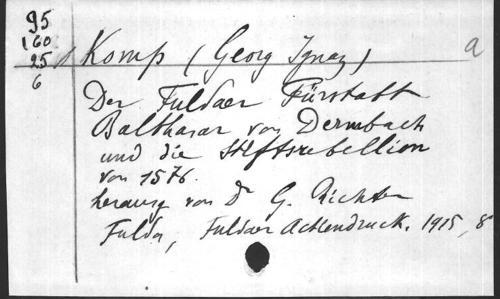 95
160
25
6
Komp (Georg Ignaz) a
Der Fuldaer Fürstabt
Balthasar von Dermbach
und die Stiftsrebellion
von 1576.
herausg von Dr G. Richter
Fulda, Fuldaer Actiendruck. 1915, 8